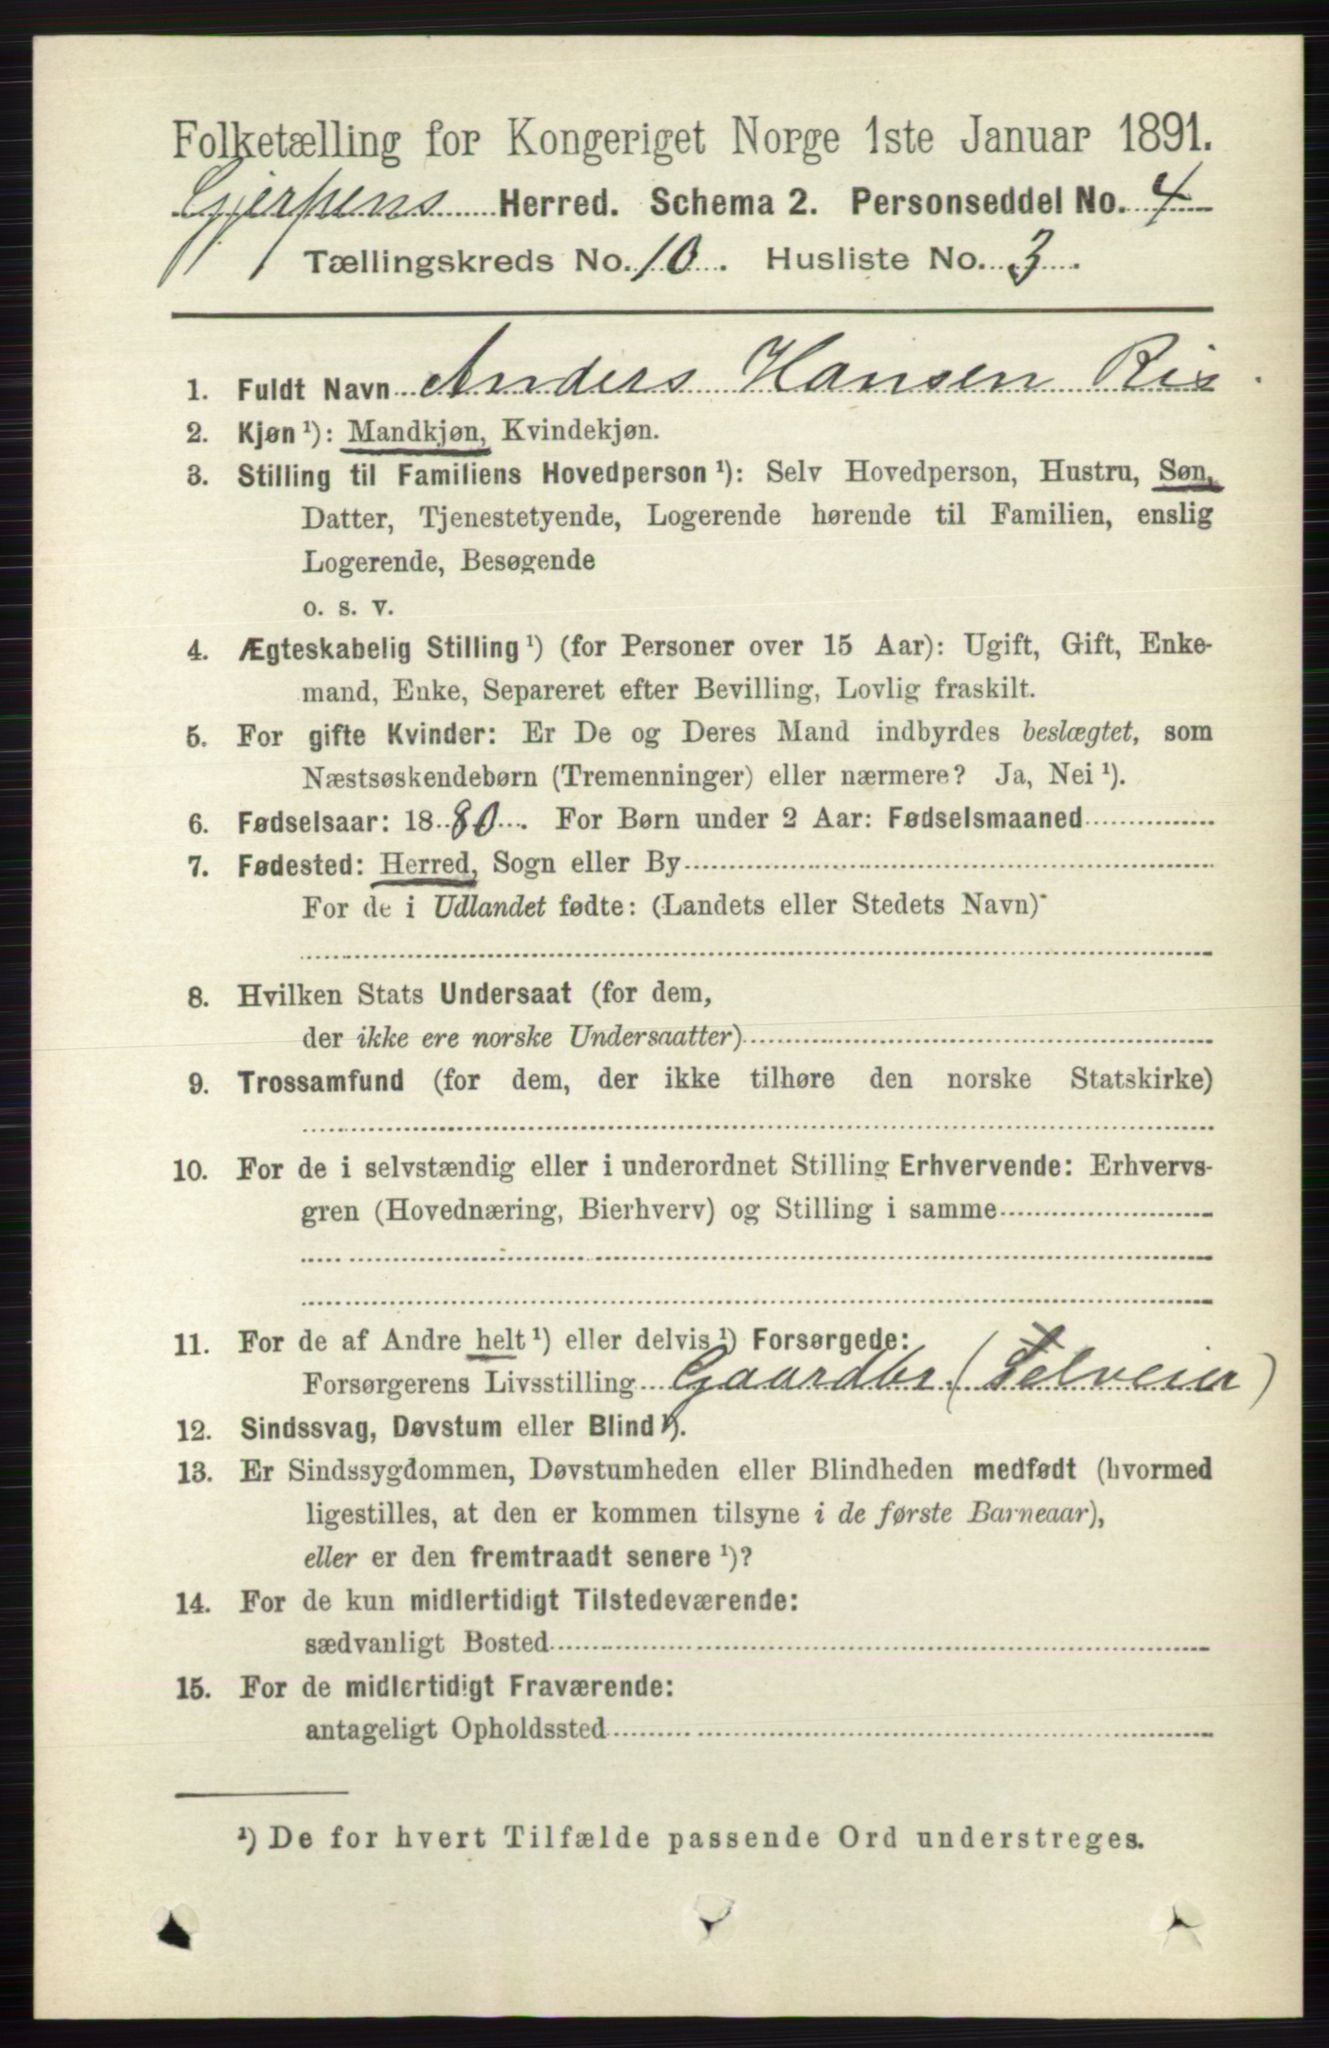 Folketælling for Kongeriget Norge 1ste Januar 1891.
Gjerpens Herred. Schema 2. Personseddel No. 4
Tællingskreds No. 10. Husliste No. 3.
1. Fuldt Navn Anders Hansen Ris.
2. Kjøn ¹): Mandkjøn, Kvindekjøn.
3. Stilling til Familiens Hovedperson ¹): Selv Hovedperson, Hustru, Søn,
Datter, Tjenestetyende, Logerende hørende til Familien, enslig
Logerende, Besøgende
o. s. v.
4. Ægteskabelig Stilling ¹) (for Personer over 15 Aar): Ugift, Gift, Enke-
mand, Enke, Separeret efter Bevilling, Lovlig fraskilt.
5. For gifte Kvinder: Er De og Deres Mand indbyrdes beslægtet, som
Næstsøskendebørn (Tremenninger) eller nærmere? Ja, Nei ¹).
6. Fødselsaar: 1880. For Børn under 2 Aar: Fødselsmaaned
7. Fødested: Herred, Sogn eller By
For de i Udlandet fødte: (Landets eller Stedets Navn)
8. Hvilken Stats Undersaat (for dem,
der ikke ere norske Undersaatter)
9. Trossamfund (for dem, der ikke tilhøre den norske Statskirke)
10. For de i selvstændig eller i underordnet Stilling Erhvervende: Erhvervs-
gren (Hovednæring, Bierhverv) og Stilling i samme
11. For de af Andre helt ¹) eller delvis ¹) Forsørgede:
Forsørgerens Livsstilling Gaardbr. (Selveier)
12. Sindssvag, Døvstum eller Blind ¹).
13. Er Sindssygdommen, Døvstumheden eller Blindheden medfødt (hvormed
ligestilles, at den er kommen tilsyne i de første Barneaar),
eller er den fremtraadt senere ¹)?
14. For de kun midlertidigt Tilstedeværende:
sædvanligt Bosted
15. For de midlertidigt Fraværende:
antageligt Opholdssted
¹) De for hvert Tilfælde passende Ord understreges.